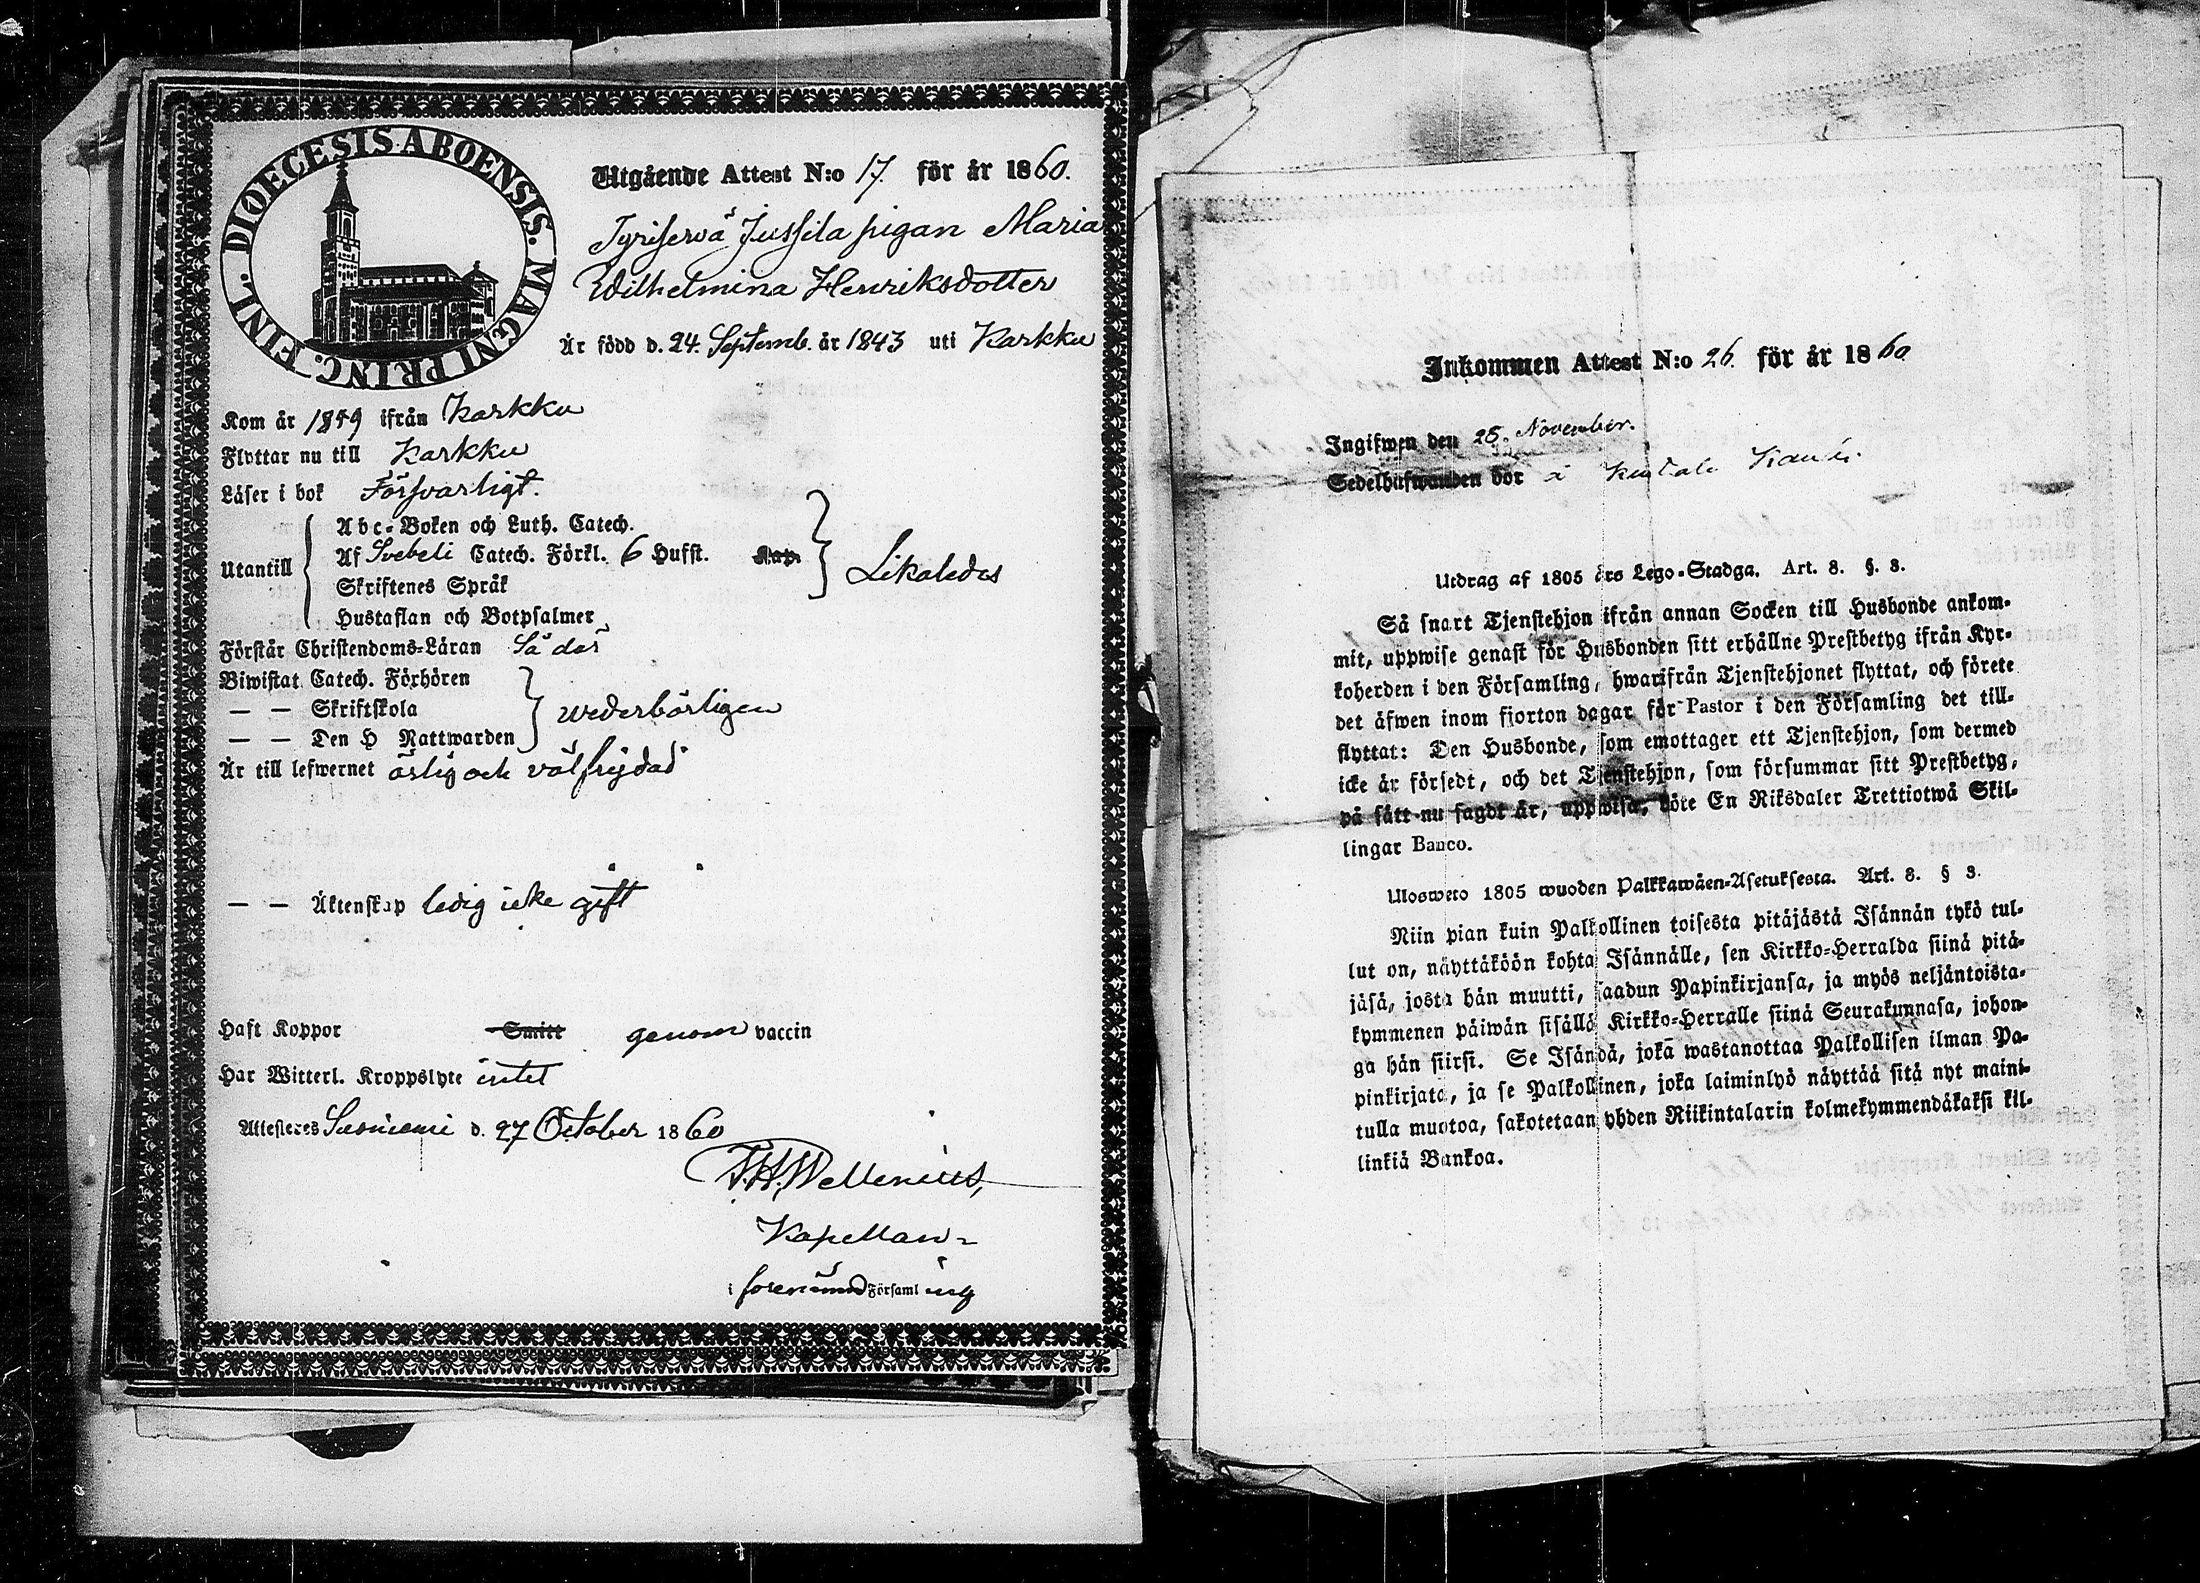 DIOECESIS ABOENSIS. MAGNI PRINC. FINL.
Utgående Attest N:o 17. för år 1860.
Tyriservä Jussila pigan Maria
Wilhelmina Henriksdotter
Är född d. 24. Septemb. år 1843 uti Karkku
Kom år 1859 ifrån Karkku
Flyttar nu till Karkku
Läser i bok Försvarligt.
Utantill
Abc-Boken och Luth. Catech.
Af Svebeli Catech. Förkl. 6 Hufst. Kap.
Skriftenes Språk
Hustaflan och Botpsalmer
Likaledes
Förstår Christendoms-Läran Så där
Biwistat Catech. Förhören
— — Skriftskola
— — Den H Nattwarden
wederbörligen
Är till lefwernet ärlig och välfrejdad
— — Äktenskap ledig icke gift
Haft Koppor Smitt genom vaccin
Har Witterl. Kroppslyte intet
Attesteras Suoniemi d. 27 October 1860
F.H. Wellenius,
Kapellan
i forenämnd Församling
Inkommen Attest N:o 26. för år 1860
Ingifwen den 25. November.
Sedelhafwanden bor å
Utdrag af 1805 års Lego-Stadga. Art. 8. §. 3.
Så snart Tjenstehjon ifrån annan Socken till Husbonde ankom-
mit, uppwise genast för Husbonden sitt erhållne Prestbetyg ifrån Kyr-
koherden i den Församling, hwarifrån Tjenstehjonet flyttat, och förete
det äfwen inom fjorton dagar för Pastor i den Församling det till-
flyttat: Den Husbonde, som emottager ett Tjenstehjon, som dermed
icke är försedt, och det Tjenstehjon, som försummar sitt Prestbetyg,
på sätt nu sagdt är, uppwisa, böte En Riksdaler Trettiotwå Skil-
lingar Banco.
Ulosweto 1805 wuoden Palkkawäen-Asetuksesta. Art. 8. § 3.
Niin pian kuin Palkollinen toisesta pitäjästä Isännän tykö tul-
lut on, näyttäköön kohta Isännälle, sen Kirkko-Herralda siinä pitä-
jäsä, josta hän muutti, saadun Papinkirjansa, ja myös neljäntoista-
kymmenen päiwän sisällä Kirkko-Herralle siinä Seurakunnasa, johon-
ga hän siirsi. Se Isändä, joka wastanottaa Palkollisen ilman Pa-
pinkirjata, ja se Palkollinen, joka laiminlyö näyttää sitä nyt maini-
tulla muotoa, sakotetaan yhden Riikintalarin kolmekymmendäkaksi kil-
linkiä Bankoa.